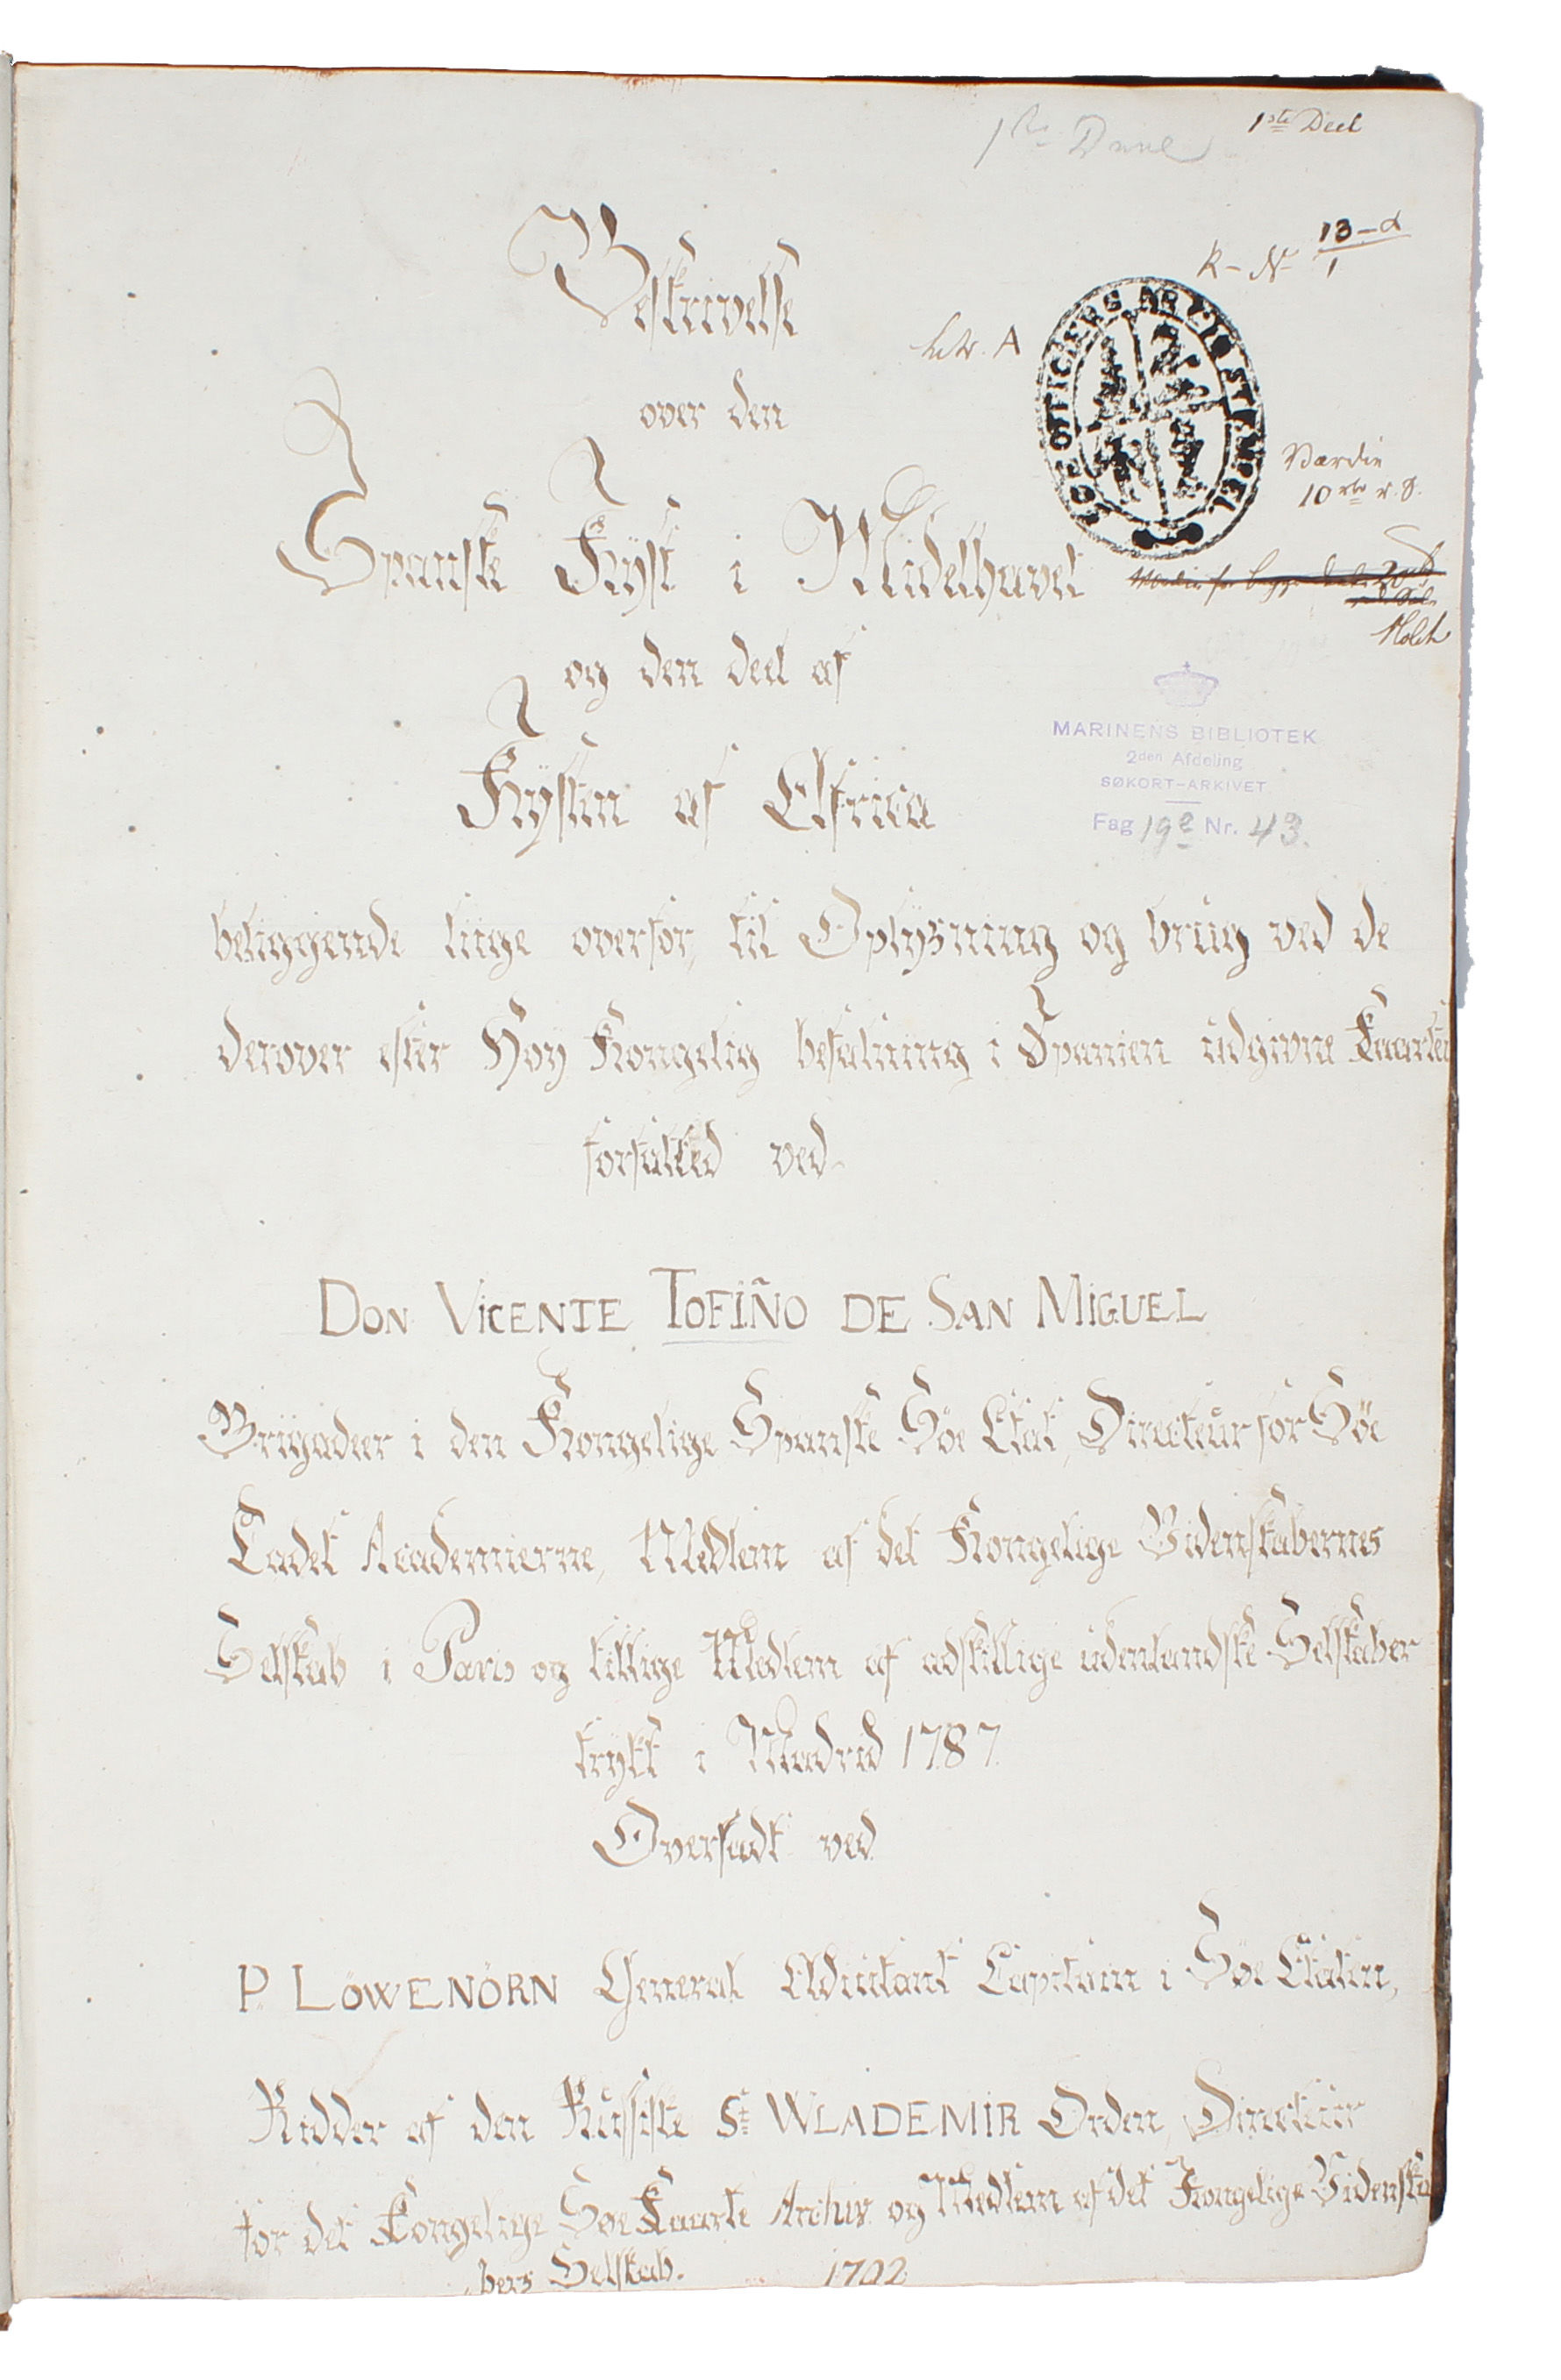 1ste Deel
1ste Deel
K - No 13-a
1
Litr. A
SØE OFFICIERS ARCHIVS STEMPEL
Værdie
10 rbr r. S.
Beskrivelse
over den
Spanske Kÿst i Midelhavet
Holch
og den deel af
Kÿsten af Africa
MARINENS BIBLIOTEK
2den Afdeling
SØKORT-ARKIVET
Fag 19e Nr. 43.
beliggende liige overfor, til Oplÿsning og brug ved de
derover efter Høy Kongelig befalning i Spanien udgivne Kaarter
forfatted ved
DON VICENTE TOFIÑO DE SAN MIGUEL
Brigadeer i den Kongelige Spanske Söe Etat, Directeur for Söe
Cadet Academierne, Medlem af det Kongelige Videnskabernes
Selskab i Paris og tillige Medlem af adskillige udenlandske Selskaber
trÿkt i Madrid 1787
Oversadt ved
P. LÖWENÖRN General Adjutant Capitain i Söe Etaten,
Ridder af den Russiske St WLADEMIR Orden, Directeur
for det Kongelige Söe Kaarte Archiv og Medlem af det Kongelige Videnska
bers Selskab. 1792